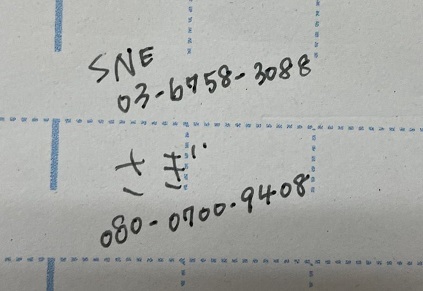 SNE
03-6758-3088
ナギ
080-0700-9408